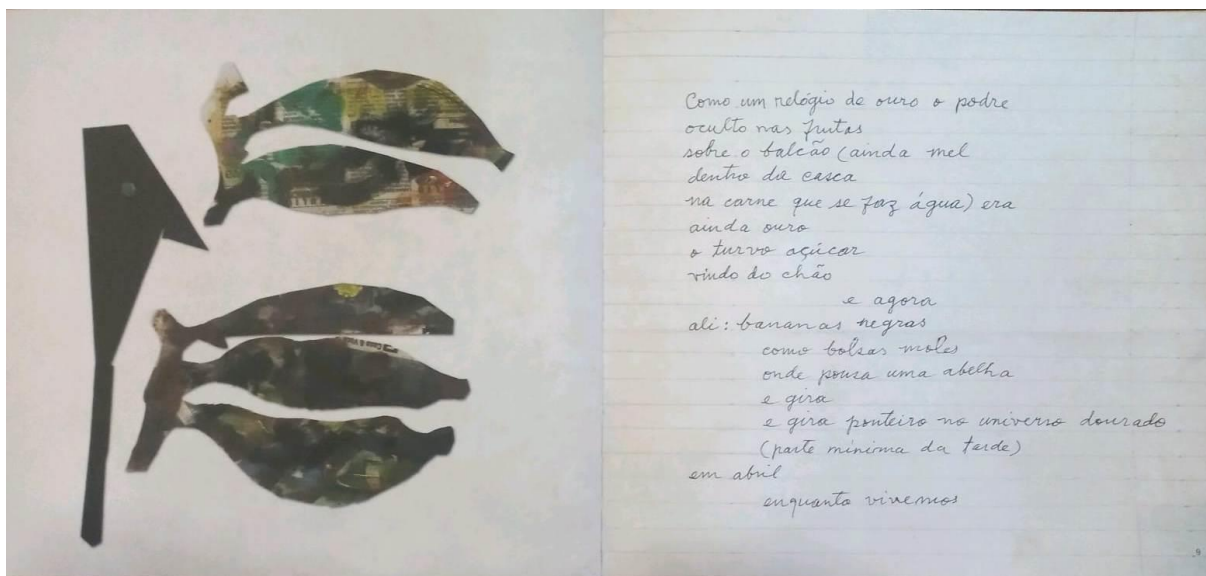 Como um relógio de ouro o podre
oculto nas frutas
sobre o balcão (ainda mel
dentro da casca
na carne que se faz água) era
ainda ouro
o turvo açúcar
vindo do chão
e agora
ali: bananas negras
como bolsas moles
onde pousa uma abelha
e gira
e gira ponteiro no universo dourado
(parte mínima da tarde)
em abril
enquanto vivemos
9